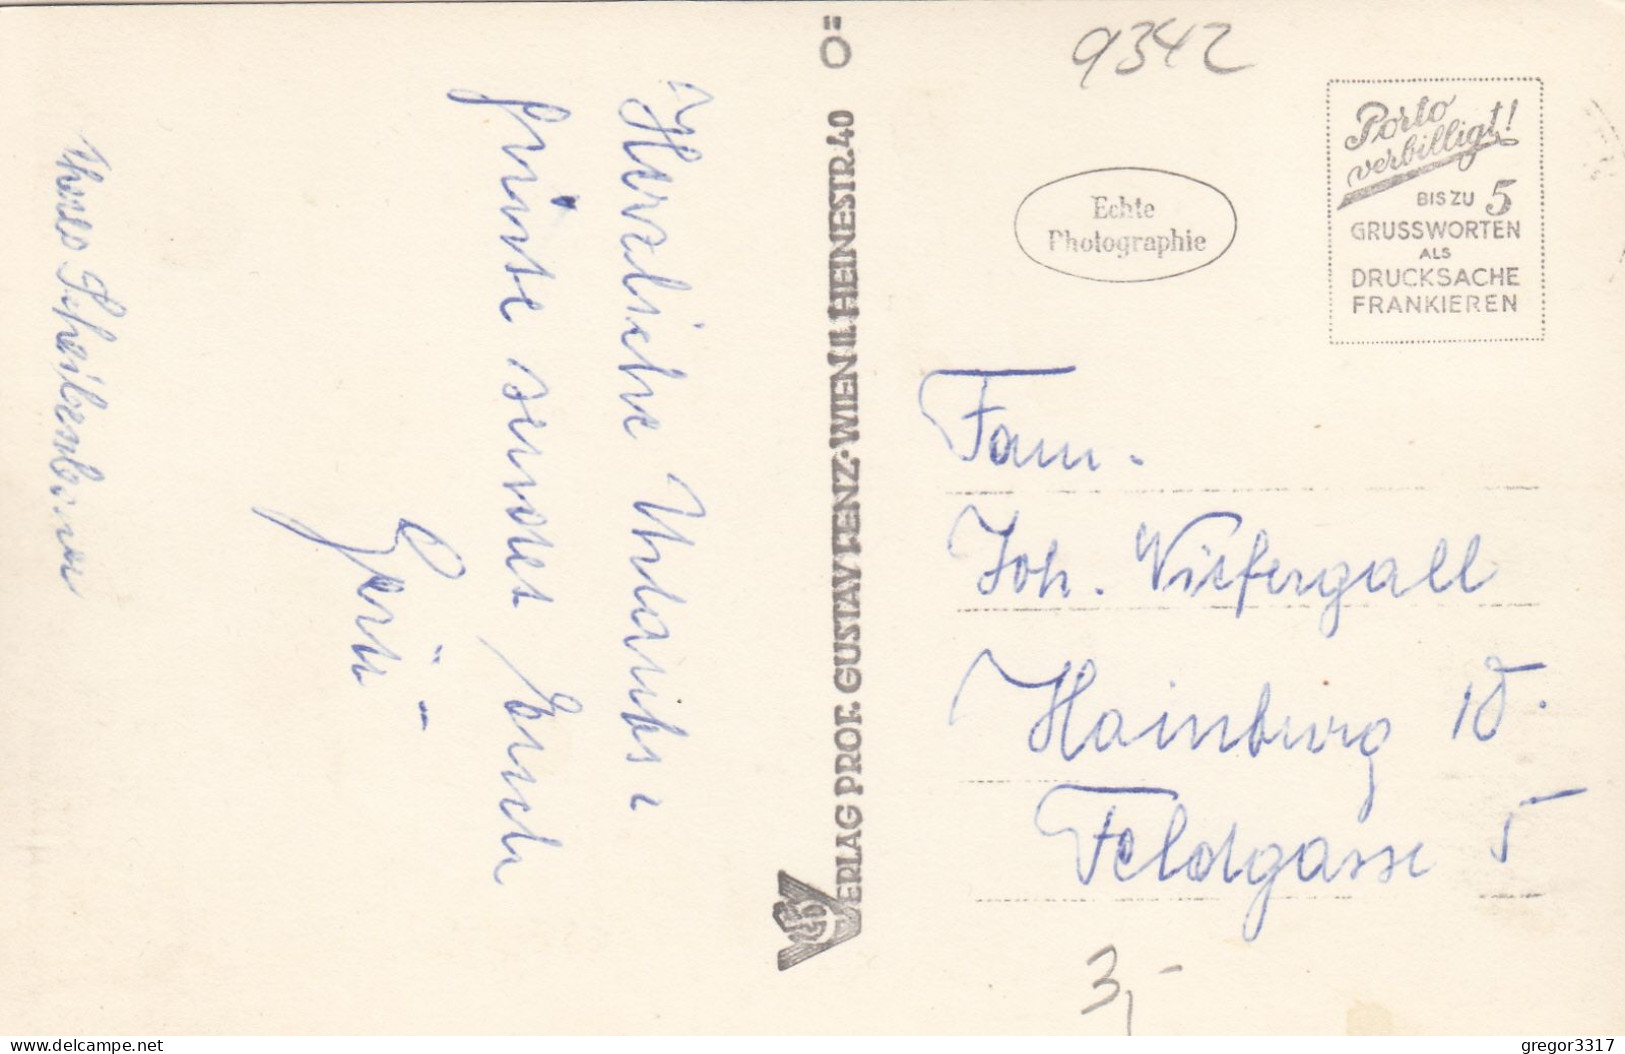 Herzliche Urlaubs-
grüße sendet Euch
Gerti
VERLAG PROF. GUSTAV LENZ · WIEN II. HEINESTR. 40 Ö
9342
Echte
Photographie
Porto
verbilligt!
BIS ZU 5
GRUSSWORTEN
ALS
DRUCKSACHE
FRANKIEREN
Fam.
Joh.
Hainburg
Feldgasse 5
3,-
delcampe.net
gregor3317